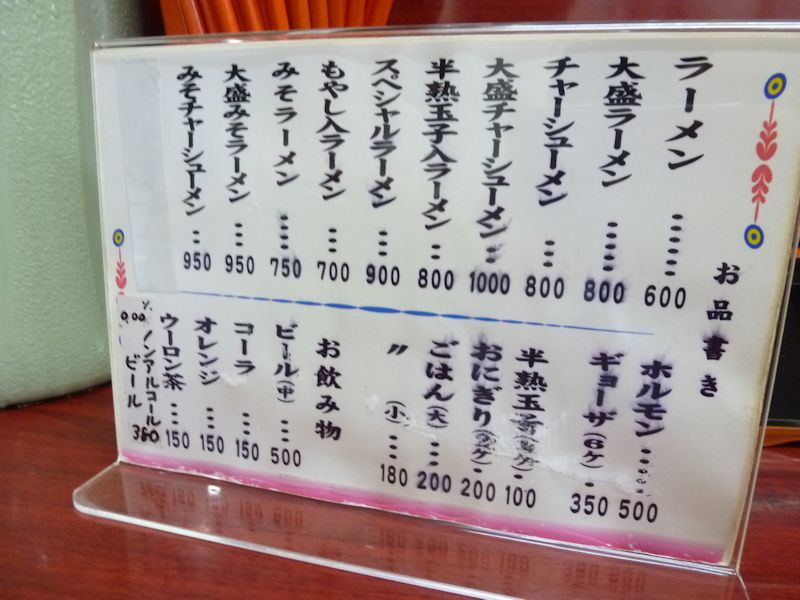 お品書き
ラーメン 600
大盛ラーメン 800
チャーシューメン 800
大盛チャーシューメン 1000
半熟玉子入ラーメン 800
スペシャルラーメン 900
もやし入ラーメン 700
みそラーメン 750
大盛みそラーメン 950
みそチャーシューメン 950
ホルモン 500
ギョーザ(6ケ) 350
半熟玉 100
おにぎり 200
ごはん(大) 200
〃 (小) 180
お飲み物
ビール(中) 500
コーラ 150
オレンジ 150
ウーロン茶 150
0.00%ノンアルコール
ビール 380